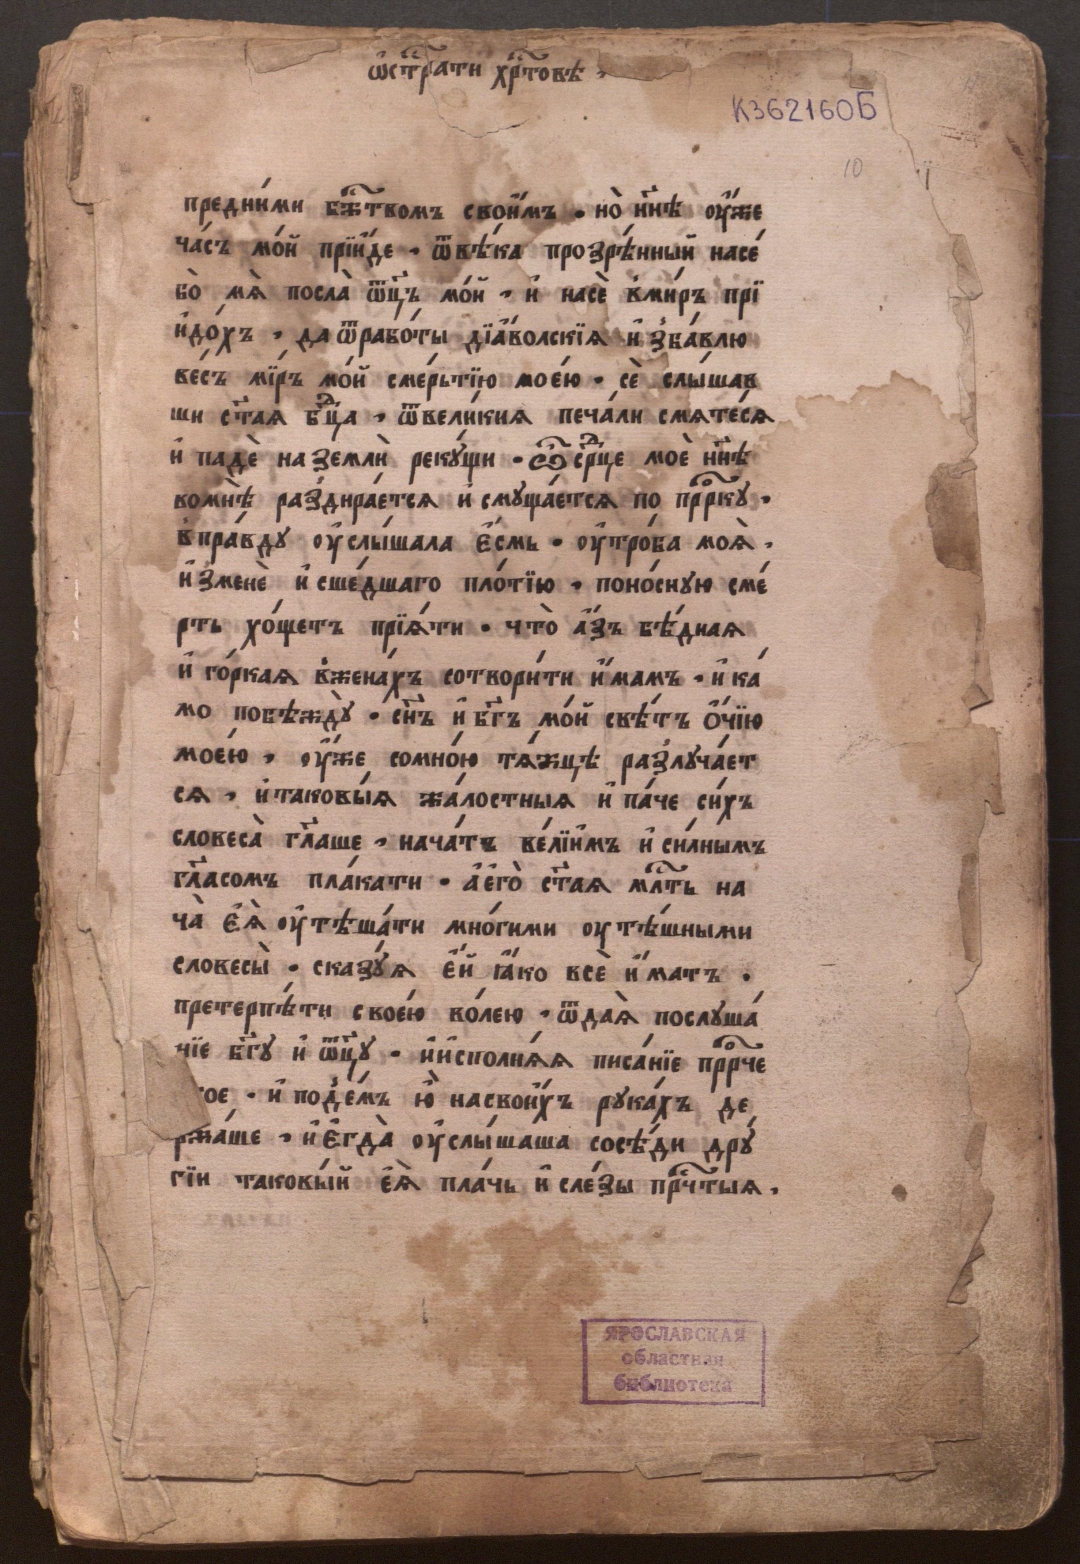 ѡ҆стрⷭ҇ати хрⷭ҇товѣ
К362160Б
10
преднїими бж҃твомъ свои́мъ · но̀ нн҃ѣ ѹ҆́же
ча́съ мо́й прїи́де · ѿвѣ́ка прозрѣ́нный насе́
бо̀ мѧ̀ посла̀ ѿц҃ъ мо́й · и҆ насѐ в̾ми́ръ прї
идо́хъ · да ѿрабо́ты дїа́волскїѧ и҆зба́влю
ве́съ мїръ мо́й сме́рьтїю мое́ю · сѐ слы́шав
ши ст҃ая бц҃а · ѿвели́кия печа́ли смѧте́сѧ
и҆ падѐ на землѝ реку́щи · ѽ срⷣце моѐ нн҃ѣ
вомнѣ̀ раздира́етсѧ и҆ смуща́етсѧ по прⷪ҇рку ·
в̾пра́вду ѹ҆слы́шала є҆́смь · ѹ҆тро́ба моѧ̀ ·
и҆зменѐ и҆сше́дшаго пло́тїю · поно́сную сме́
рть хо́щетъ прїѧ́ти · что̀ а҆́зъ бѣ́днаѧ
и҆ го́ркая в̾жена́хъ сотвори́ти и҆́мамъ · и҆ ка́
мо побѣжду̀ · сн҃ъ и҆ бг҃ъ мо́й свѣ́тъ ѻ҆́чїю
мое́ю · ѹ҆́же сомно́ю тѧ́жцѣ разлуча́ет
сѧ · и҆таковы́ѧ жа́лостныѧ и҆ па́че си́хъ
словеса̀ гл҃аше · нача́тъ ве́лїимъ и҆ си́лнымъ
гл҃асомъ пла́кати · а҆ є҆го̀ ст҃аѧ млⷭ҇ть на
ча̀ є҆ѧ̀ ѹ҆тѣша́ти мно́гими ѹтѣ́шными
словесы̀ · сказу́ѧ є҆́й ꙗ҆́ко всѐ и҆́матъ ·
претерпѣ́ти свое́ю во́лею · ѿдаѧ̀ послуша́
нїе бг҃у и҆ ѿц҃у · и҆ и҆сполнѧ́ѧ писа́нїе прⷪ҇рче
кое · и҆ поде́мъ ю҆̀ насвои́хъ рука́хъ де
ржа́ше · и҆ є҆гда̀ ѹ҆слы́шаша сосѣ́ди дру́
гїи таковы́й є҆ѧ̀ пла́чь и҆ сле́зы прⷱ҇тыѧ ·
ЯРОСЛАВСКАЯ
областная
библиотека